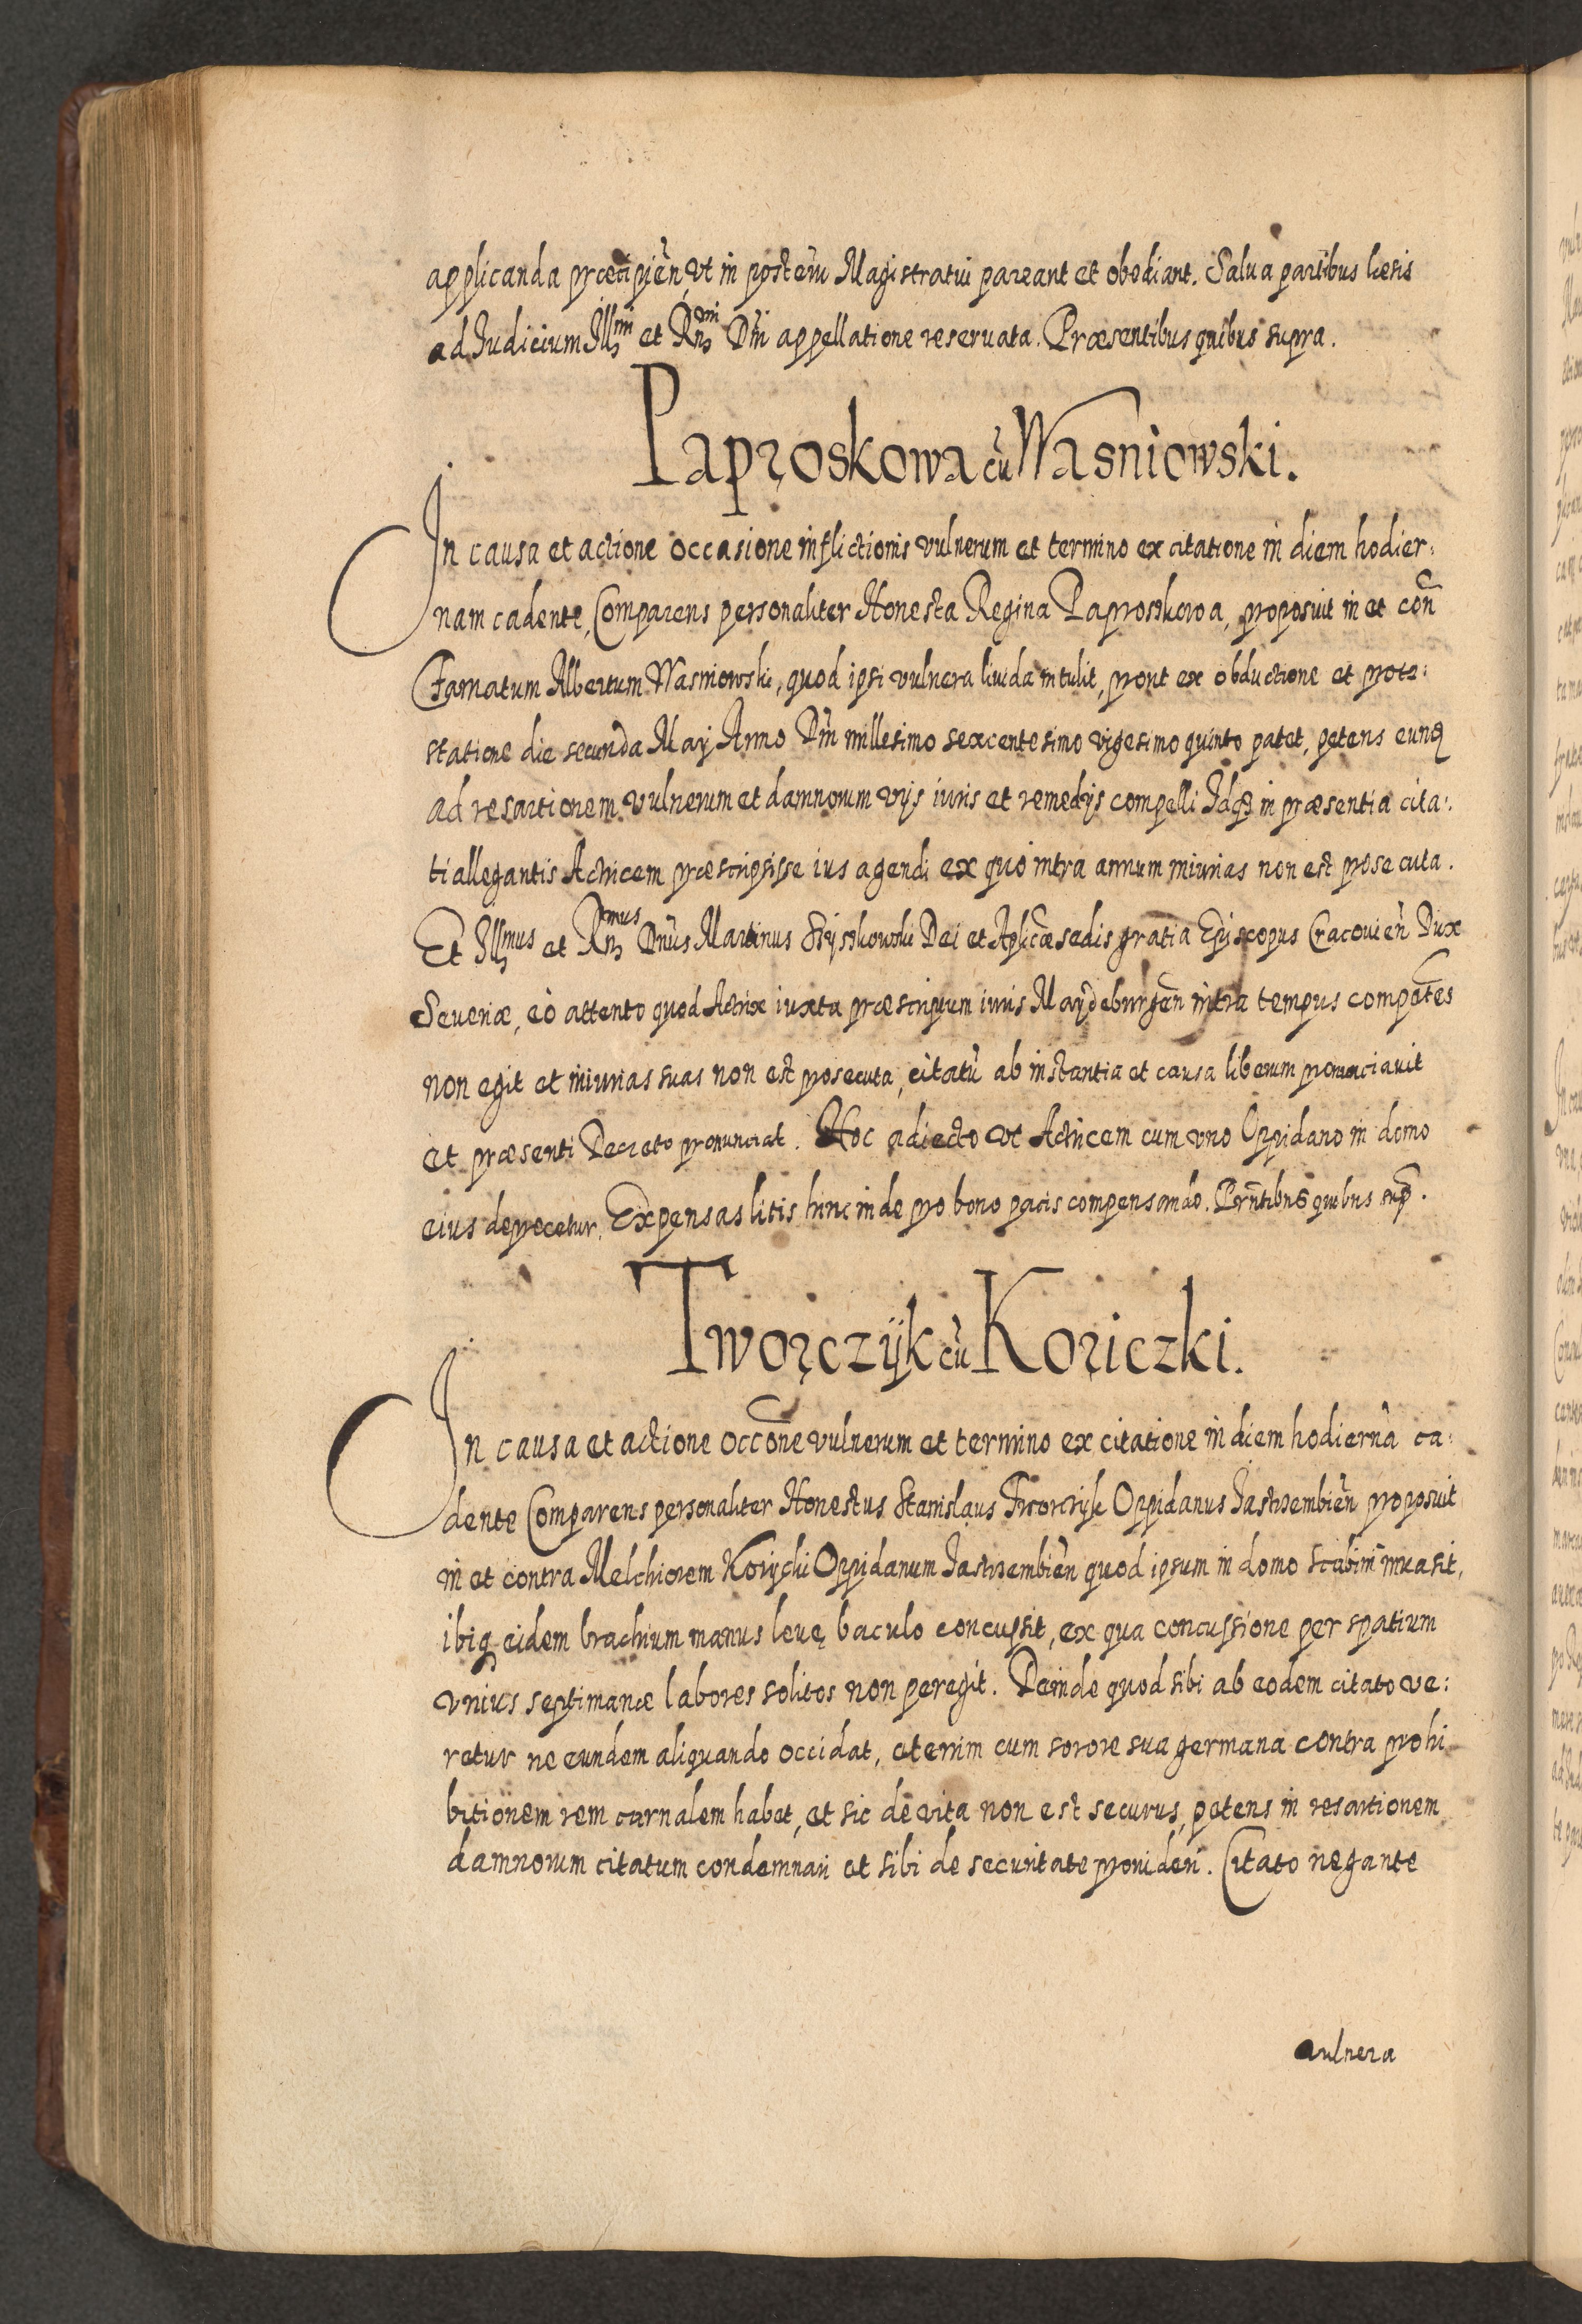 applicanda præcipien̄, vt in poster̄u Magistratui pareant et obediant. Salua partibus læsis
ad Judicium Ill[mi] et Rn[dmi] Dn̄i appellatione reseruata. Præsentibus quibus supra.
Paproskowa cū Wasniowski.
In causa et actione occasione inflictionis vulnerum et termino ex citatione in diem hodier:
nam cadente, Comparens personaliter Honesta Regina Paproskowa, proposuit in et con̄
Famatum Albertum Wasniowski, quod ipsi vulnera liuida intulit, prout ex obductione et prote:
statione die secunda Maÿ Anno Dn̄i millesimo sexcentesimo vigesimo quinto patet, petens eunq
ad resartionem vulnerum et damnorum vijs iuris et remedijs compelli Idq in præsentia cita:
ti allegantis Actricem præscripsisse ius agendi ex quo intra annum iniurias non est prosecuta.
Et Illmus et Rnmus Dnūs Martinus Szyszkowski Dei et Aplicæ sedis gratia Episcopus Cracouien̄ Dux
Seueriæ, eò attento quod Actrix iuxta præscriptum iuris Maÿdeburgen̄ intra tempus compet̄es
non egit et iniurias suas non est prosecuta, citatū ab instantia et causa liberum pronunciauit
et præsenti Decreto pronunciat. Hoc adiecto vt Actricem cum vno Oppidano in domo
eius deprecetur. Expensas litis hinc inde pro bono pacis compensando. Prn̄tibus quibus sup̄.
Tworczÿk cū Koriczki.
In causa et actione occōne vulnerum et termino ex citatione in diem hodiernā ca:
dente Comparens personaliter Honestus Stanislaus Tworczyk Oppidanus Jastrzembien̄ proposuit
in et contra Melchiorem Koryczki Oppidanum Jastrzembien̄ quod ipsum in domo scabini inuasit,
ibiq eidem brachium manus leuę baculo concussit, ex qua concussione per spatium
vnius septimanæ labores solitos non peregit. Deinde quod sibi ab eodem citato ve:
retur ne eundem aliquando occidat, etenim cum sorore sua germana contra prohi
bitionem rem carnalem habet, et sic de vita non est securus, petens in resartionem
damnorum citatum condemnari et sibi de securitate prouideri. Citato negante
vulnera